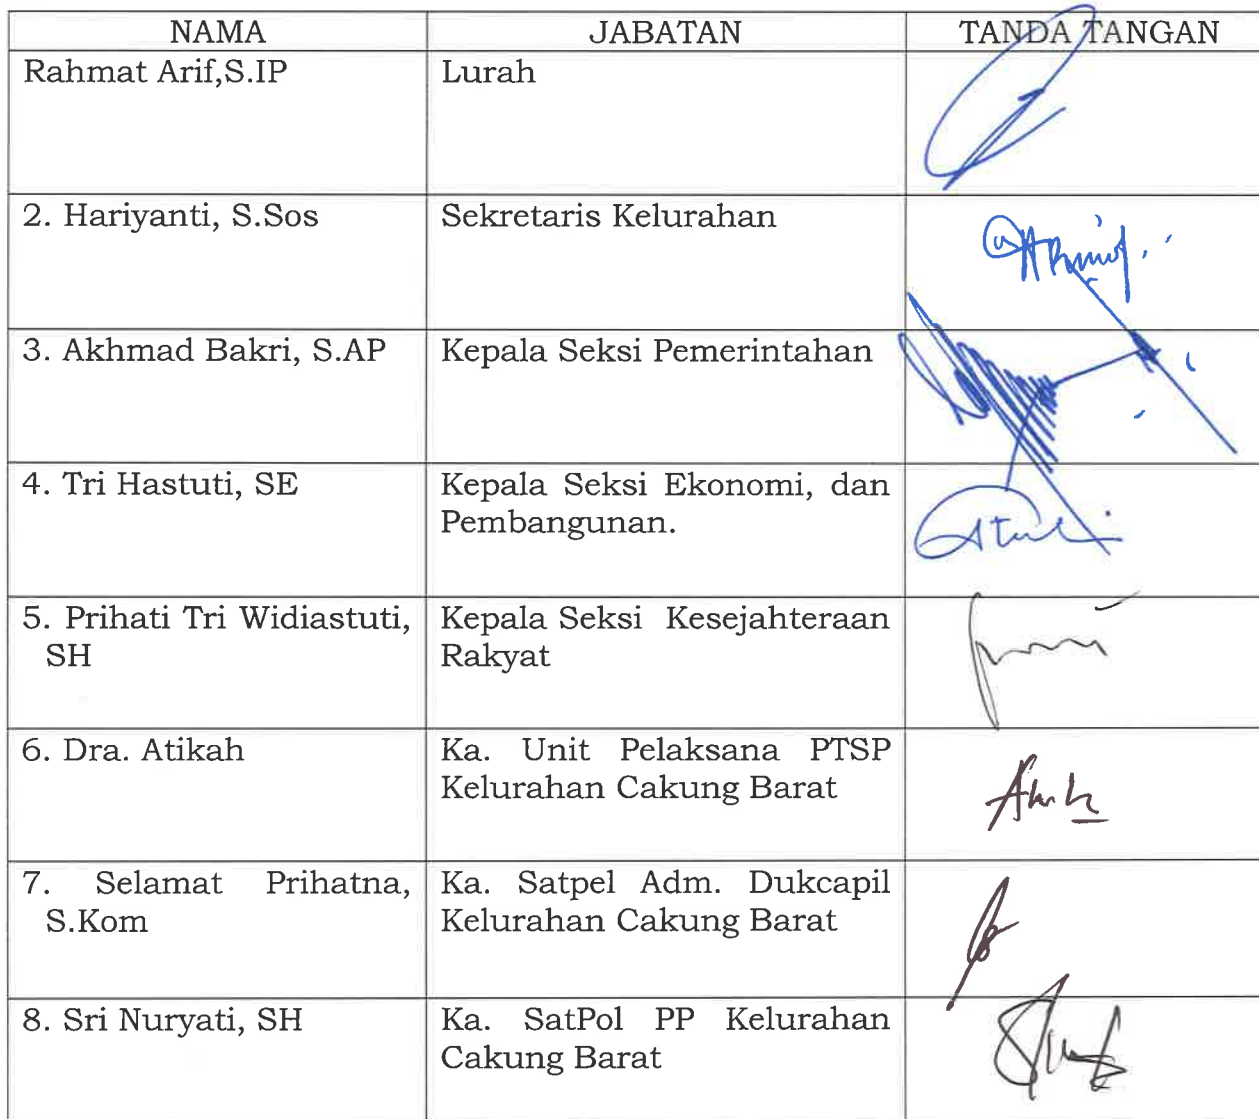 NAMA JABATAN TANDA TANGAN
Rahmat Arif,S.IP Lurah
2. Hariyanti, S.Sos Sekretaris Kelurahan
3. Akhmad Bakri, S.AP Kepala Seksi Pemerintahan
4. Tri Hastuti, SE Kepala Seksi Ekonomi, dan
Pembangunan.
5. Prihati Tri Widiastuti, Kepala Seksi Kesejahteraan
SH Rakyat
6. Dra. Atikah Ka. Unit Pelaksana PTSP
Kelurahan Cakung Barat
7. Selamat Prihatna, Ka. Satpel Adm. Dukcapil
S.Kom Kelurahan Cakung Barat
8. Sri Nuryati, SH Ka. SatPol PP Kelurahan
Cakung Barat